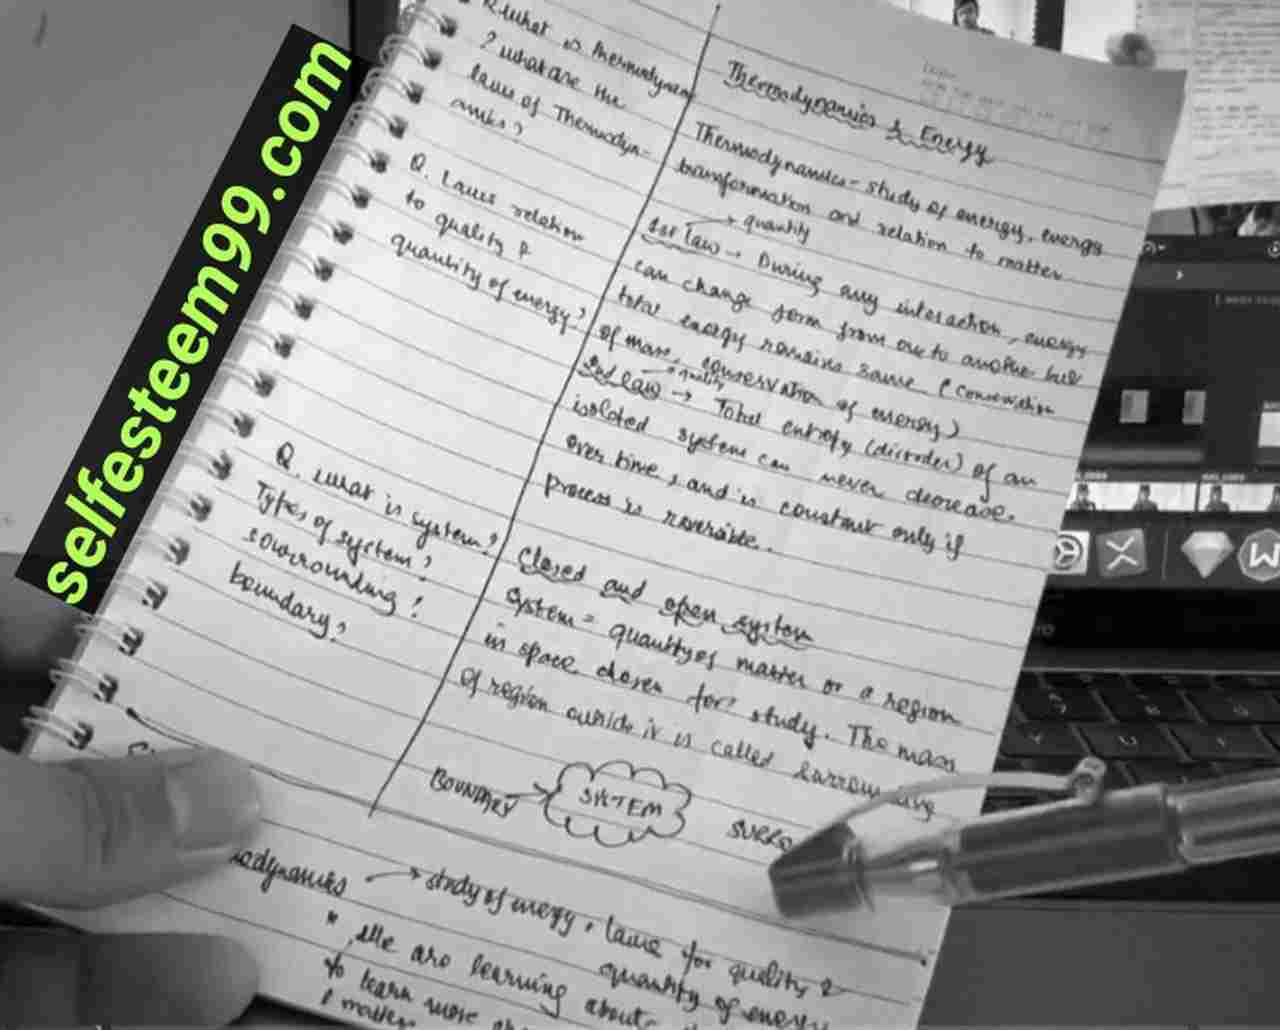 selfesteem99.com
Q. What is thermodynam
? what are the
laws of Thermodyn-
amics?
Q. Laws relation
to quality &
quantity of energy?
Q. what is system?
Types of system?
sourrounding?
boundary?
Thermodynamics & Energy
Thermodynamics - study of energy, energy
transformation and relation to matter
quantity
1st law → During any interaction, energy
can change form from one to another but
total energy remains same (conservation
of mass, conservation of energy)
quality
2nd law → Total entropy (disorder) of an
isolated system can never decrease
over time, and is constant only if
process is reversible.
Closed and open system
System = quantity of matter or a region
in space chosen for study. The mass
of region outside it is called
BOUNDARY → SYSTEM SURRO
odynamics → study of energy, laws for quality &
quantity of energy
* We are learning about
to learn more
& matter